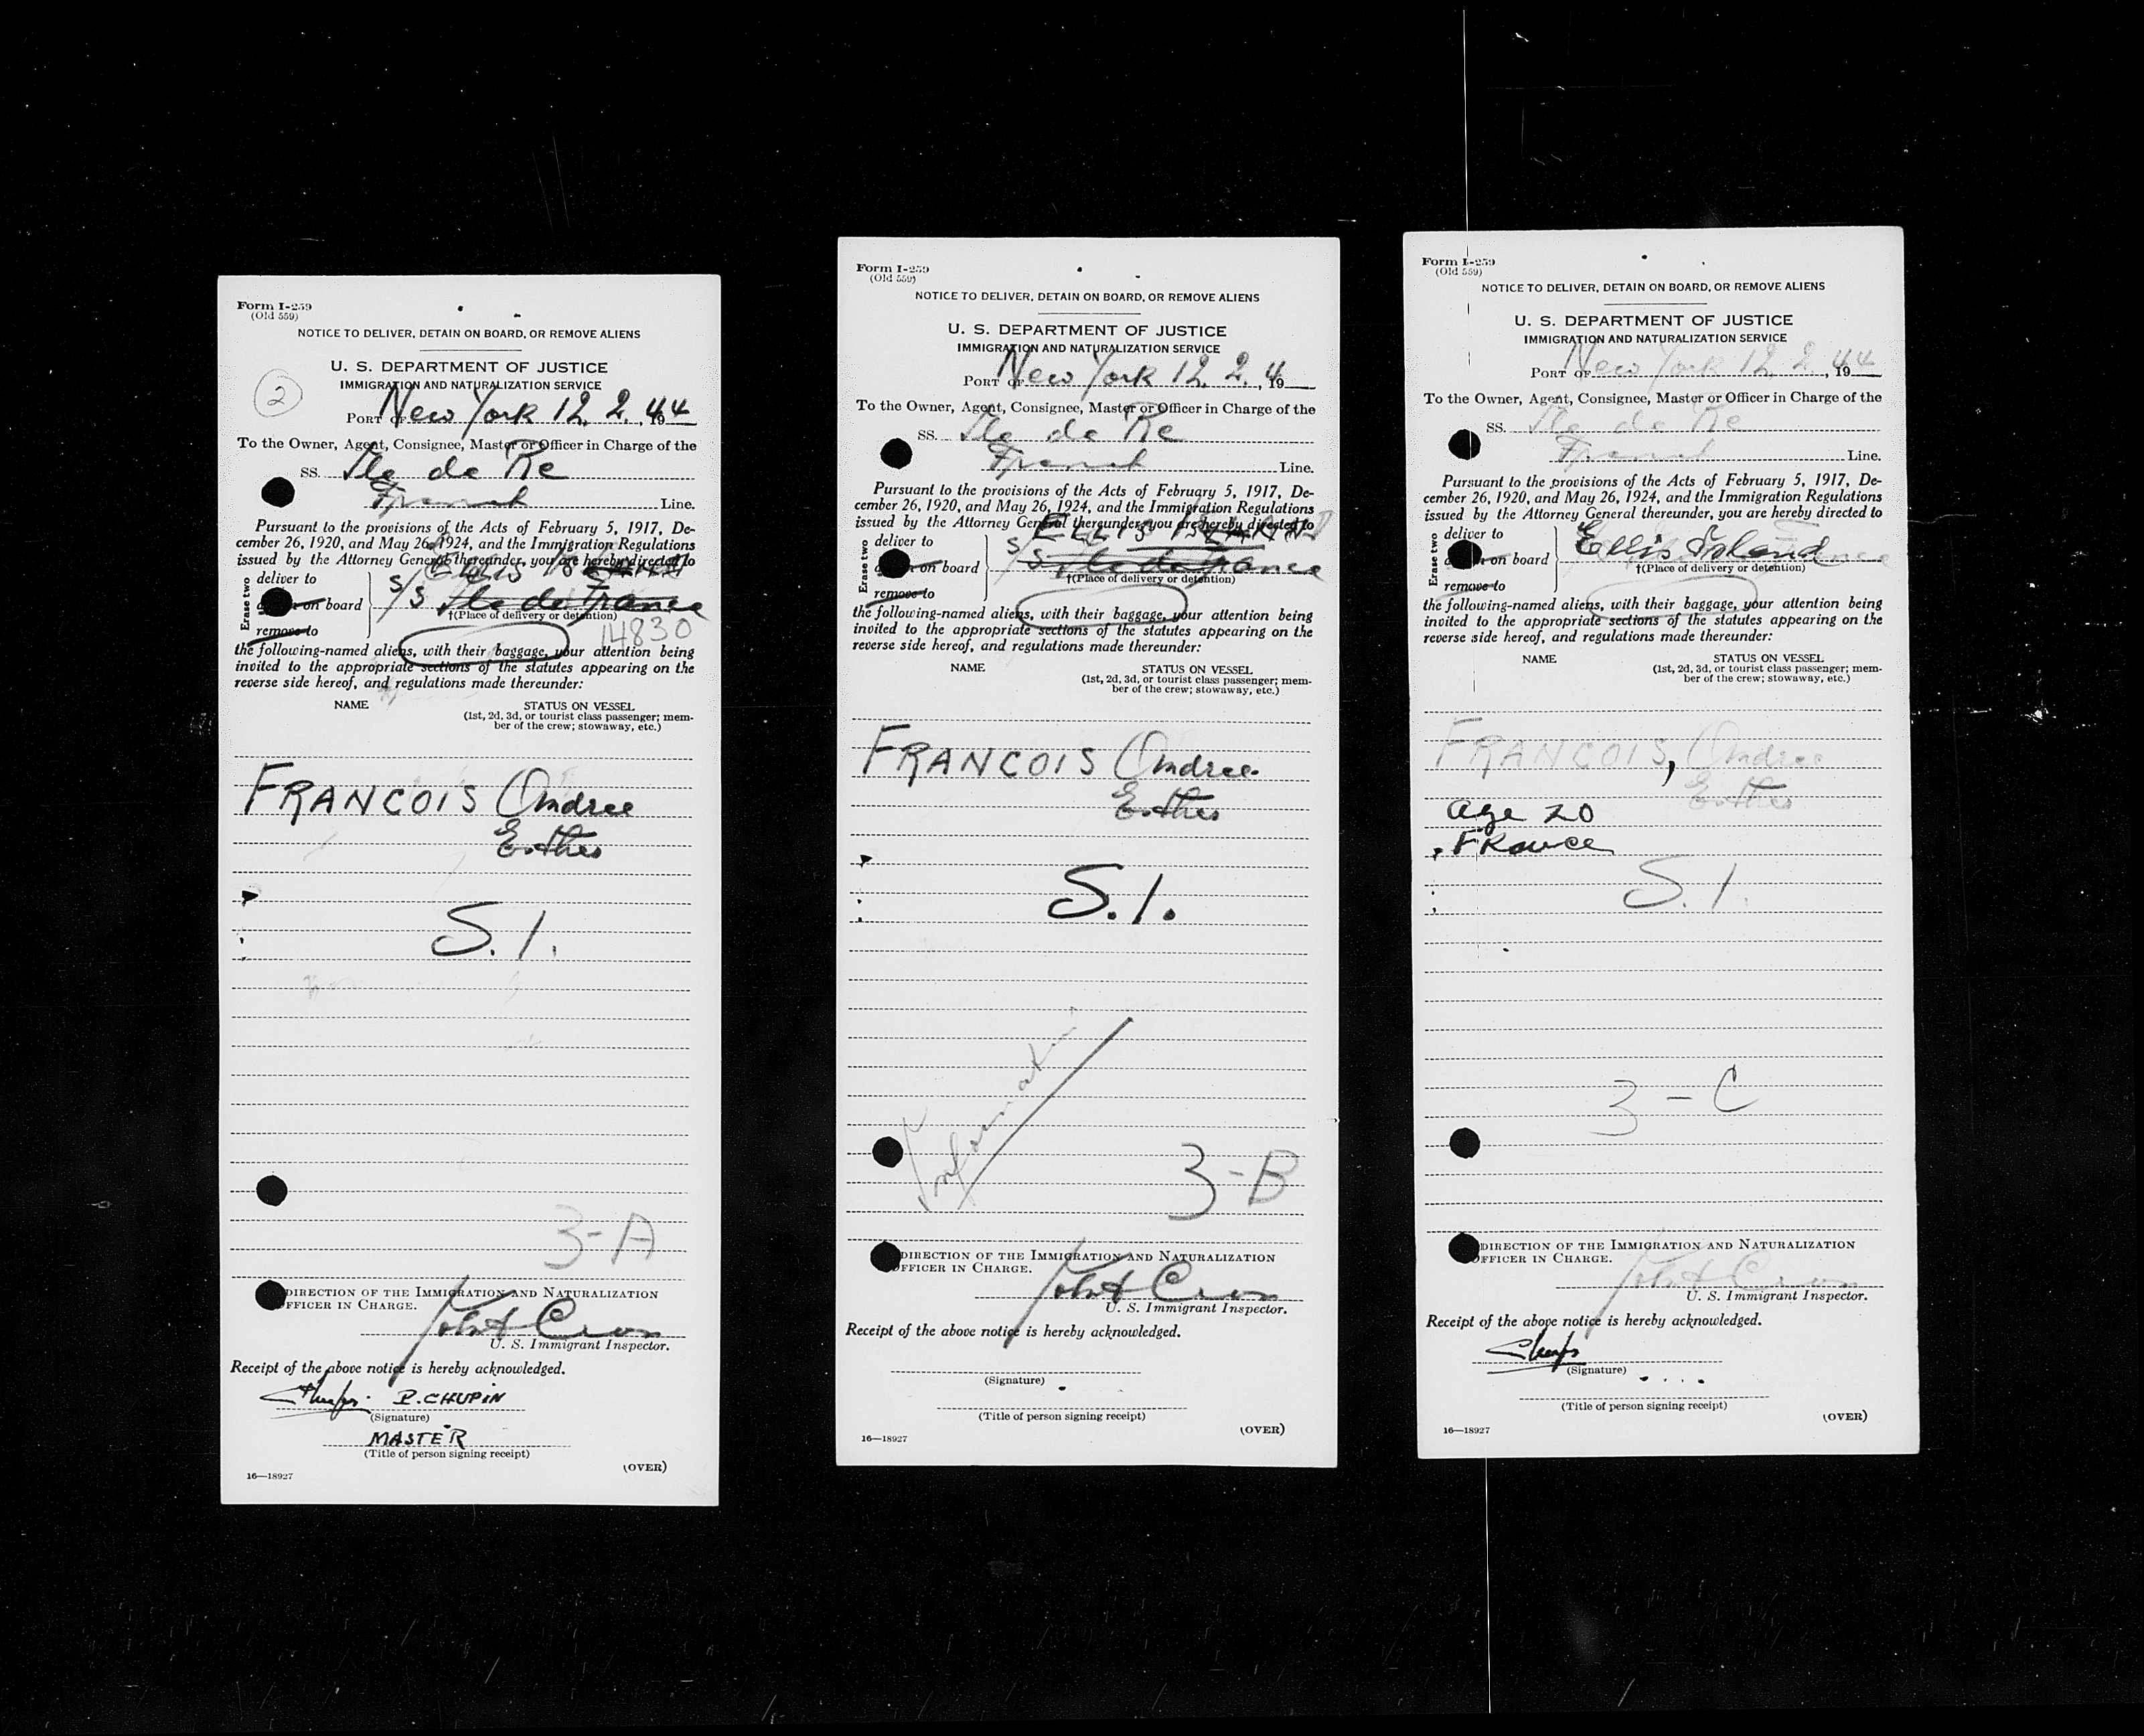 Form I-259
(Old 559)
NOTICE TO DELIVER, DETAIN ON BOARD, OR REMOVE ALIENS
U. S. DEPARTMENT OF JUSTICE
IMMIGRATION AND NATURALIZATION SERVICE
2
PORT OF New York 12. 2. , 1944
To the Owner, Agent, Consignee, Master or Officer in Charge of the
SS. Ile de Re
French Line.
Pursuant to the provisions of the Acts of February 5, 1917, De-
cember 26, 1920, and May 26, 1924, and the Immigration Regulations
issued by the Attorney General thereunder, you are hereby directed to
Erase two
deliver to
Ellis Island
on board
S/S Ile de France
†(Place of delivery or detention)
remove to
14830
the following-named aliens, with their baggage, your attention being
invited to the appropriate sections of the statutes appearing on the
reverse side hereof, and regulations made thereunder:
NAME STATUS ON VESSEL
(1st, 2d, 3d, or tourist class passenger; mem-
ber of the crew; stowaway, etc.)
FRANCOIS Andree
Esther
S.I.
3-A
DIRECTION OF THE IMMIGRATION AND NATURALIZATION
OFFICER IN CHARGE.
U. S. Immigrant Inspector.
Receipt of the above notice is hereby acknowledged.
P. CHUPIN
(Signature)
MASTER
(Title of person signing receipt)
(OVER)
16—18927
Form I-259
(Old 559)
NOTICE TO DELIVER, DETAIN ON BOARD, OR REMOVE ALIENS
U. S. DEPARTMENT OF JUSTICE
IMMIGRATION AND NATURALIZATION SERVICE
PORT OF New York 12. 2. 4, 19
To the Owner, Agent, Consignee, Master or Officer in Charge of the
SS. Ile de Re
French Line.
Pursuant to the provisions of the Acts of February 5, 1917, De-
cember 26, 1920, and May 26, 1924, and the Immigration Regulations
issued by the Attorney General thereunder, you are hereby directed to
Erase two
deliver to
ELLIS ISLAND
on board
S/S Ile de France
†(Place of delivery or detention)
remove to
the following-named aliens, with their baggage, your attention being
invited to the appropriate sections of the statutes appearing on the
reverse side hereof, and regulations made thereunder:
NAME STATUS ON VESSEL
(1st, 2d, 3d, or tourist class passenger; mem-
ber of the crew; stowaway, etc.)
FRANCOIS Andree
Esther
S.I.
Information
3-B
DIRECTION OF THE IMMIGRATION AND NATURALIZATION
OFFICER IN CHARGE.
U. S. Immigrant Inspector.
Receipt of the above notice is hereby acknowledged.
(Signature)
(Title of person signing receipt)
(OVER)
16—18927
Form I-259
(Old 559)
NOTICE TO DELIVER, DETAIN ON BOARD, OR REMOVE ALIENS
U. S. DEPARTMENT OF JUSTICE
IMMIGRATION AND NATURALIZATION SERVICE
PORT OF New York 12. 2. , 1944
To the Owner, Agent, Consignee, Master or Officer in Charge of the
SS. Ile de Re
French Line.
Pursuant to the provisions of the Acts of February 5, 1917, De-
cember 26, 1920, and May 26, 1924, and the Immigration Regulations
issued by the Attorney General thereunder, you are hereby directed to
Erase two
deliver to
Ellis Island
on board
†(Place of delivery or detention)
remove to
the following-named aliens, with their baggage, your attention being
invited to the appropriate sections of the statutes appearing on the
reverse side hereof, and regulations made thereunder:
NAME STATUS ON VESSEL
(1st, 2d, 3d, or tourist class passenger; mem-
ber of the crew; stowaway, etc.)
FRANCOIS, Andree
Esther
Age 20
France
S.I.
3-C
DIRECTION OF THE IMMIGRATION AND NATURALIZATION
OFFICER IN CHARGE.
U. S. Immigrant Inspector.
Receipt of the above notice is hereby acknowledged.
(Signature)
(Title of person signing receipt)
(OVER)
16—18927